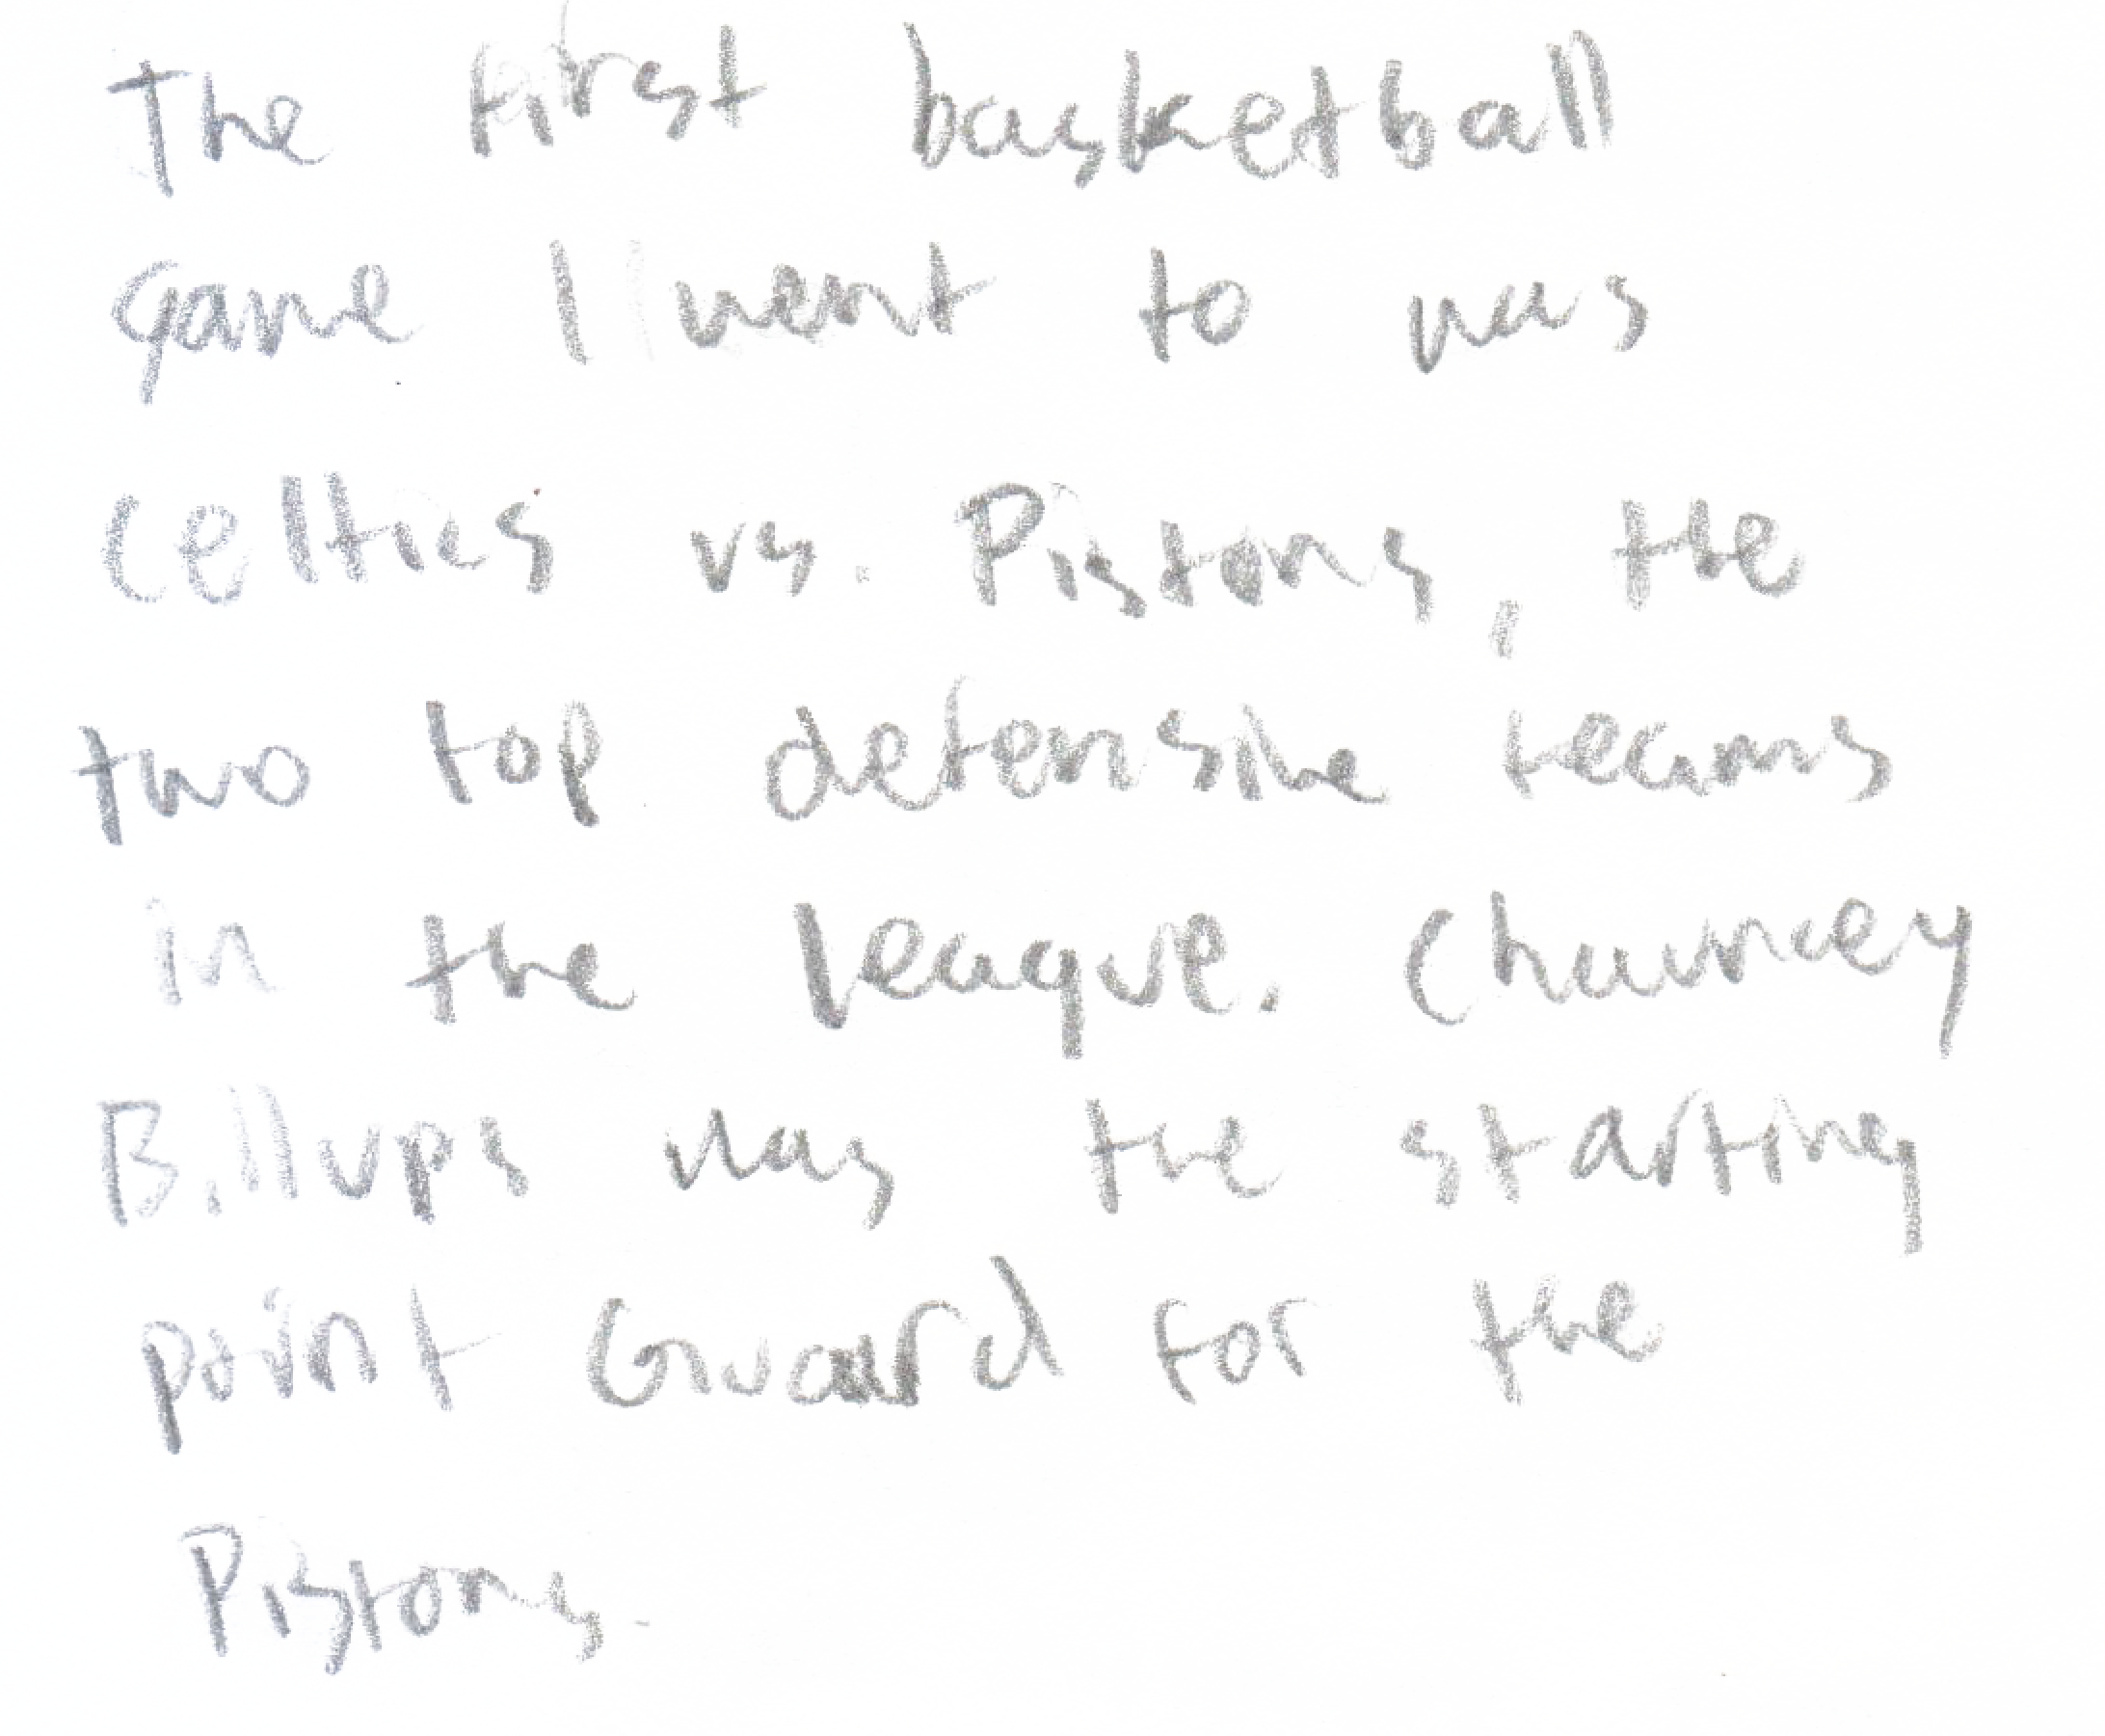 The first basketball
game I went to was
Celtics vs. Pistons, the
two top defensive teams
in the league. Chauncey
Billups was the starting
point Guard for the
Pistons.